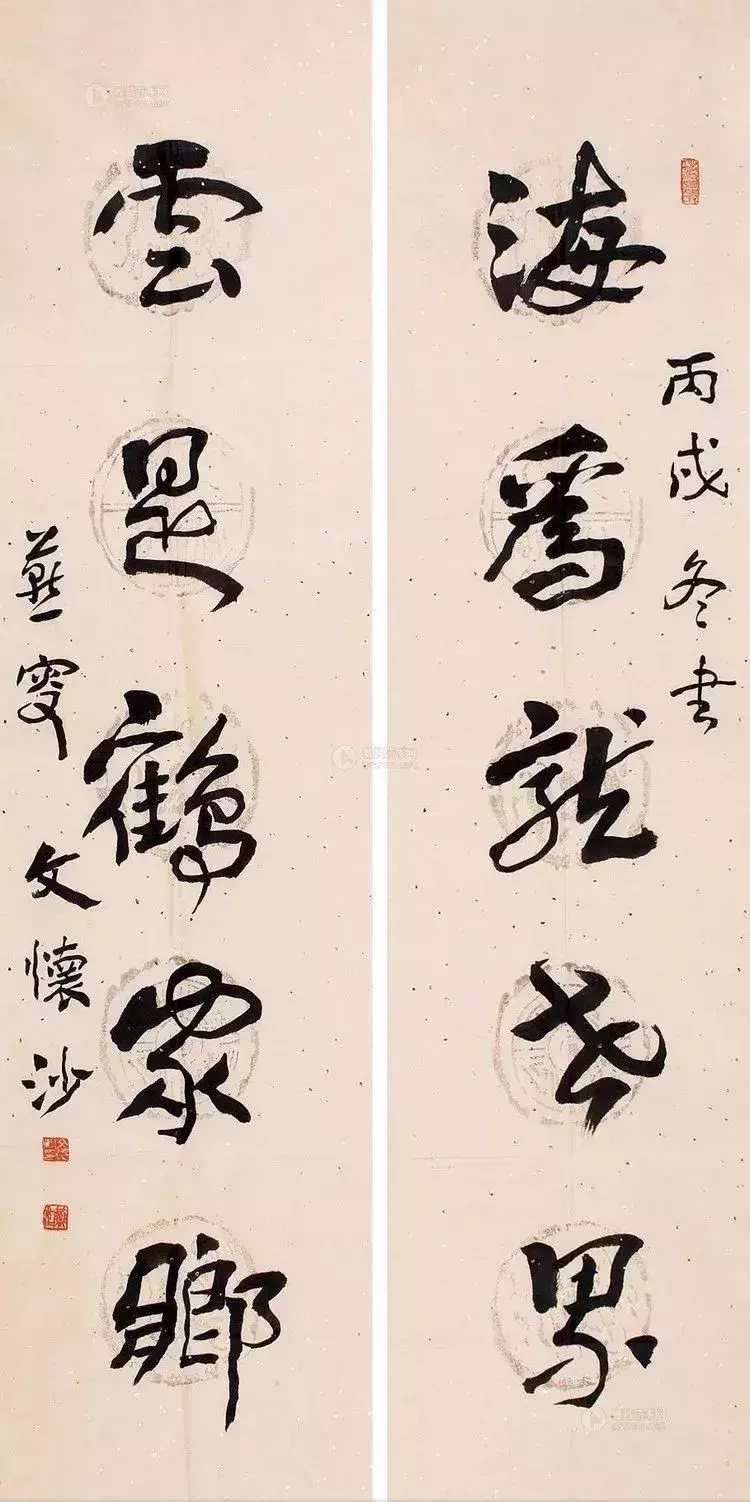 丙戌冬書
海為龍世界
雲是鶴家鄉
燕叟文懷沙